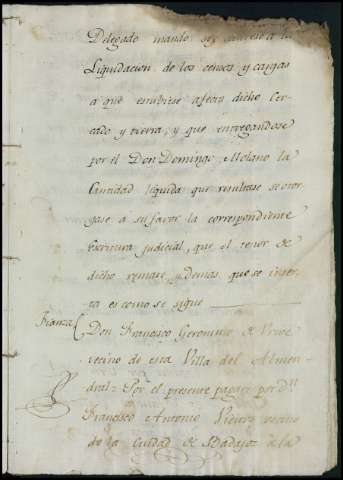 Delegado mandó se, hiciese la
Liquidacion de los censos y cargas
a que estubiese afecto dicho Cer-
cado y tierra, y que entregandose
por el Don Domingo Molano la
Cantidad liquida que resultase se otor
gase a su favor la correspondiente
escritura judicial, que el tenor de
dicho remate y demas que se inser-
ta es como se sigue
Fianza Don Francisco Geronimo de
vecino de esta Villa del Almen-
dral= Por el presente pagaré por Dn
Francisco Antonio vecino
de la Ciudad de Badajoz de la